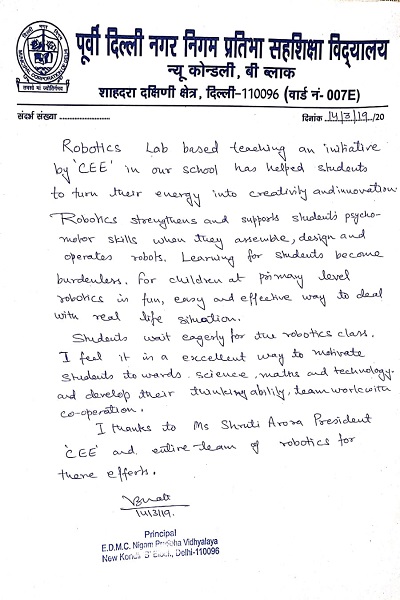 पूर्वी दिल्ली नगर निगम प्रतिभा सहशिक्षा विद्यालय
न्यू कोन्डली, बी ब्लाक
शाहदरा दक्षिणी क्षेत्र, दिल्ली-110096 (वार्ड नं- 007E)
संदर्भ संख्या ........................ दिनांक 14/3/19 /20
Robotics Lab based teaching an initiative
by 'CEE' in our school has helped students
to turn their energy into creativity and innovation
Robotics strengthens and supports students psycho-
motor skills when they assemble, design and
operates robots. Learning for students become
burdenless. For children at primary level
robotics is fun, easy and effective way to deal
with real life situation.
Students wait eagerly for the robotics class.
I feel it is a excellent way to motivate
students to wards science, maths and technology.
and develop their thinking ability, team work with
co-operation.
I thanks to Ms Shruti Arora President
'CEE' and entire team of robotics for
there efforts.
14/3/19.
Principal
E.D.M.C. Nigam Pratibha Vidhyalaya
New Kondli 'B' Block, Delhi-110096